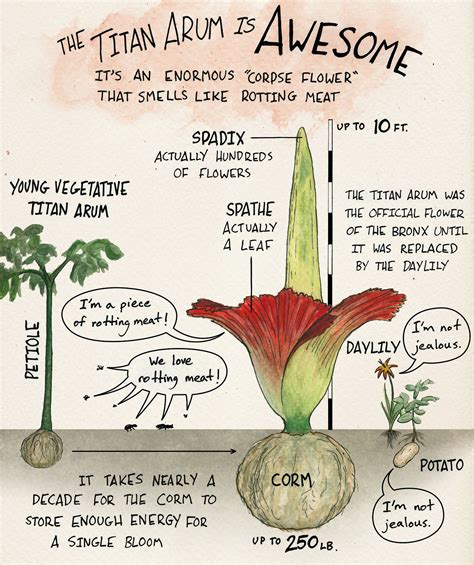 THE TITAN ARUM IS AWESOME
IT'S AN ENORMOUS "CORPSE FLOWER"
THAT SMELLS LIKE ROTTING MEAT
UP TO 10 FT.
SPADIX
ACTUALLY HUNDREDS
OF FLOWERS
YOUNG VEGETATIVE
TITAN ARUM
SPATHE
ACTUALLY
A LEAF
THE TITAN ARUM WAS
THE OFFICIAL FLOWER
OF THE BRONX UNTIL
IT WAS REPLACED
BY THE DAYLILY
PETIOLE
I'm a piece
of rotting meat!
We love
rotting meat!
DAYLILY
I'm not
jealous.
CORM
UP TO 250 LB.
POTATO
I'm not
jealous.
IT TAKES NEARLY A
DECADE FOR THE CORM TO
STORE ENOUGH ENERGY FOR
A SINGLE BLOOM